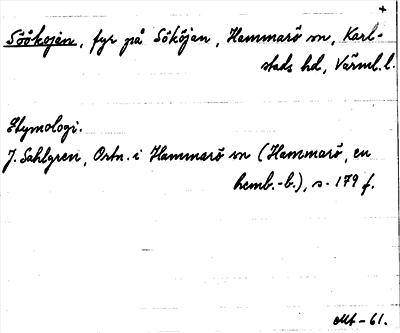 +
Söökojan, fyr på Sököjan, Hammarö sn, Karl-
stads hd, Värml. l.
Etymologi.
J. Sahlgren, Ortn. i Hammarö sn (Hammarö, en
hemb.-b.), s. 179 f.
Mt -61.